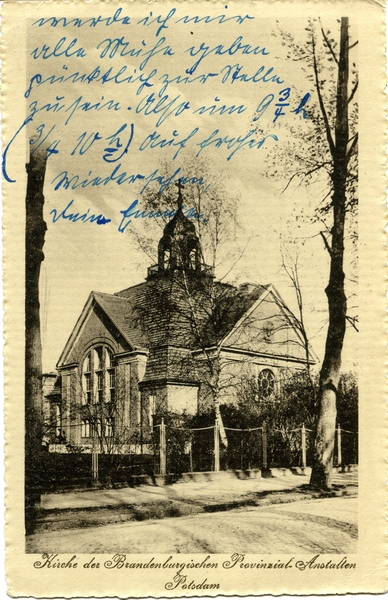 werde ich mir
alle Mühe geben
pünktlich zur Stelle
zu sein. Also um 9 3/4 h
(3/4 10 h) Auf frohes
Wiedersehen
Dein
Kirche der Brandenburgischen Provinzial-Anstalten
Potsdam